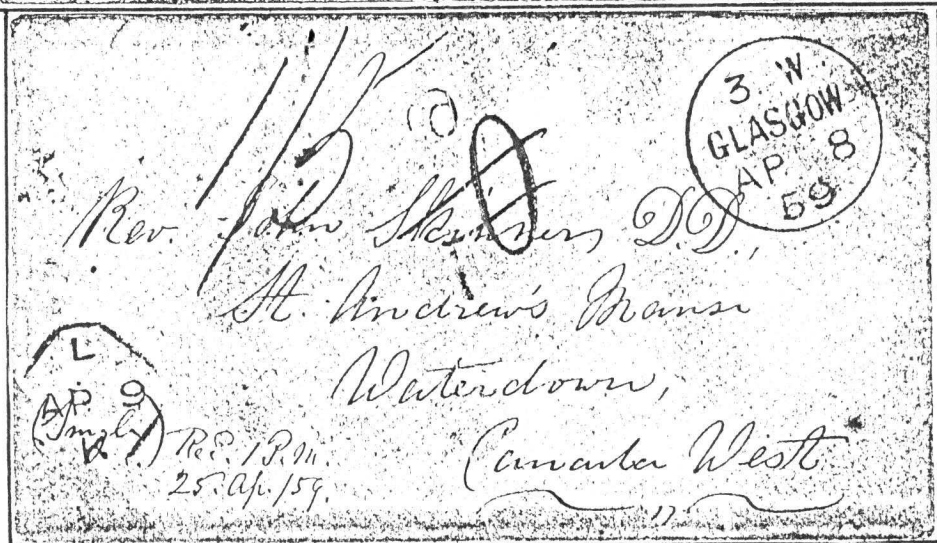 3 W
GLASGOW
AP 8
59
Rev. John Skinner, D.D.,
St. Andrew's Manse
Waterdown,
Canada West
L
AP 9
Rec. 1 P.M.
25. Ap./59.